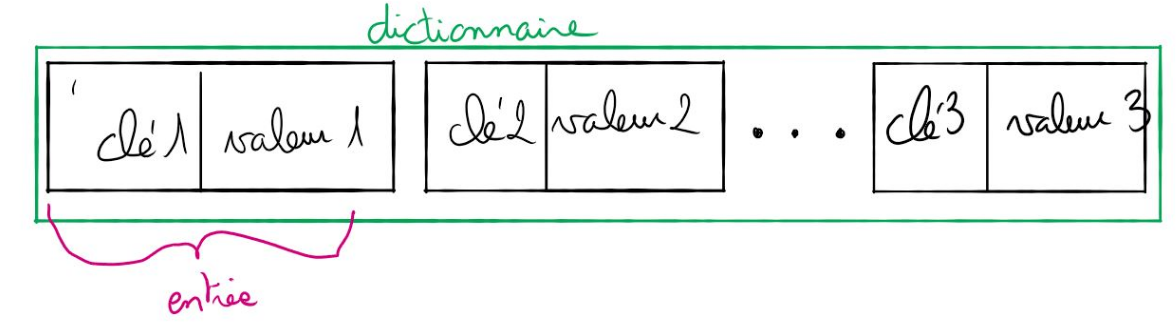 dictionnaire
clé 1 valeur 1 clé 2 valeur 2 . . . clé 3 valeur 3
entrée